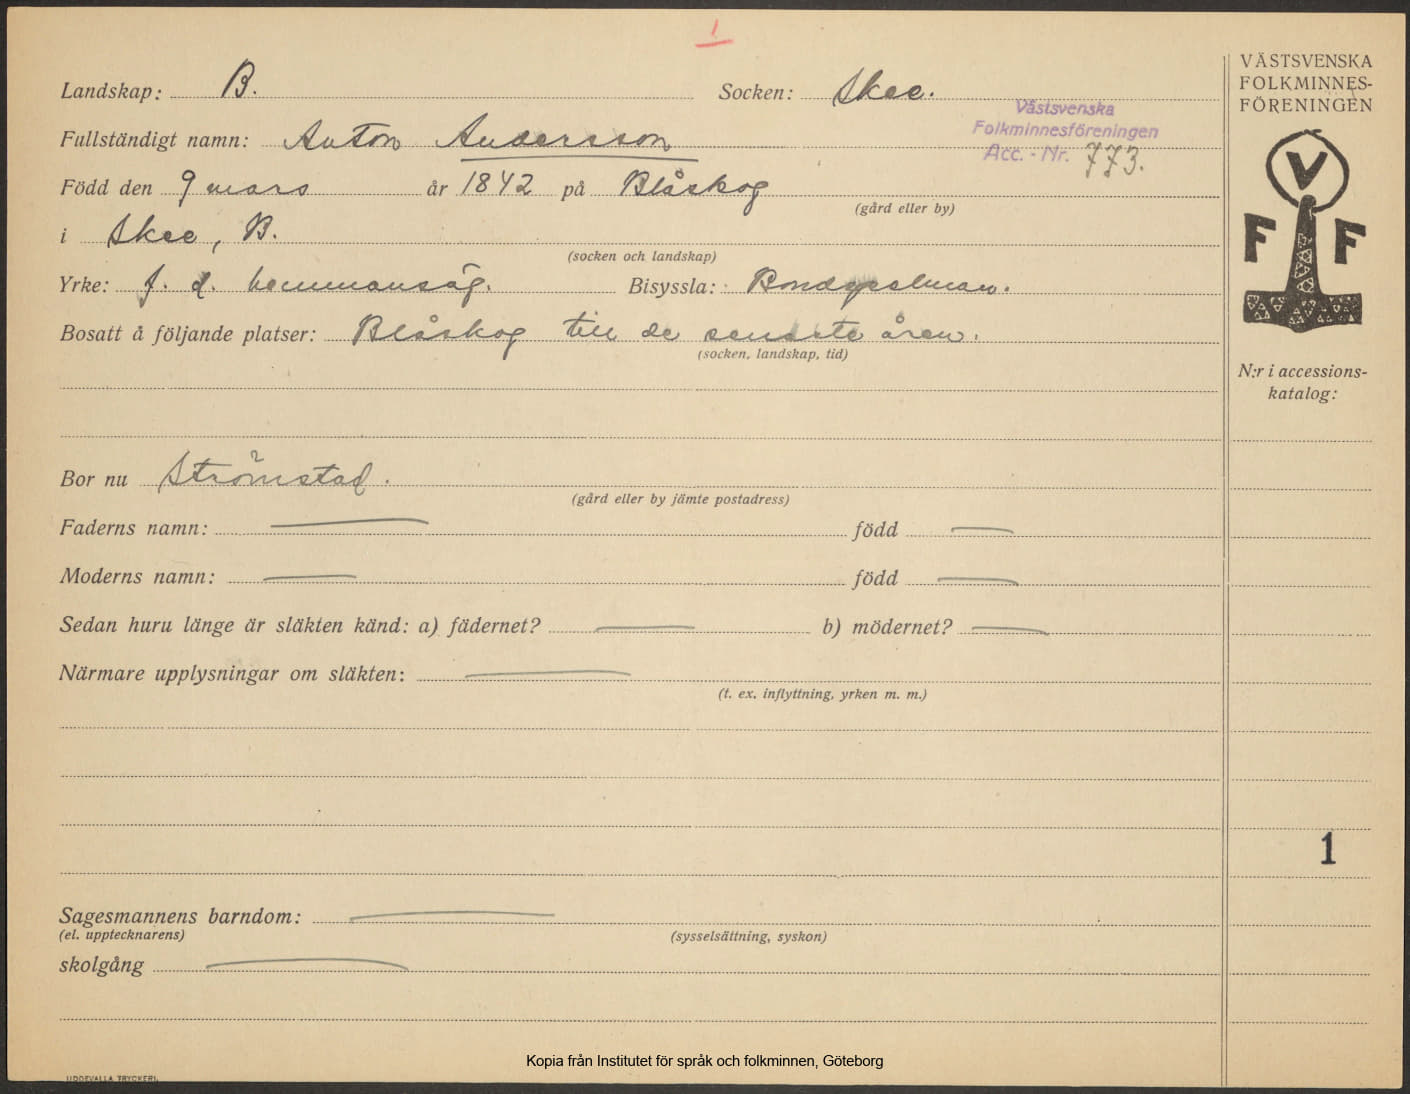 1
VÄSTSVENSKA
FOLKMINNES-
FÖRENINGEN
V
F F
Landskap: B. Socken: Skee.
Västsvenska
Folkminnesföreningen
Acc. - Nr. 773.
Fullständigt namn: Anton Andersson
Född den 9 mars år 1842 på Blåskog
(gård eller by)
i Skee, B.
(socken och landskap)
Yrke: f. d. hemmansäg. Bisyssla: Bondespelman.
Bosatt å följande platser: Blåskog till de senaste åren.
(socken, landskap, tid)
N:r i accessions-
katalog:
Bor nu Strömstad.
(gård eller by jämte postadress)
Faderns namn: — född —
Moderns namn: — född —
Sedan huru länge är släkten känd: a) fädernet? — b) mödernet? —
Närmare upplysningar om släkten: —
(t. ex. inflyttning, yrken m. m.)
1
Sagesmannens barndom: —
(el. upptecknarens) (sysselsättning, syskon)
skolgång —
Kopia från Institutet för språk och folkminnen, Göteborg
UDDEVALLA TRYCKERI.